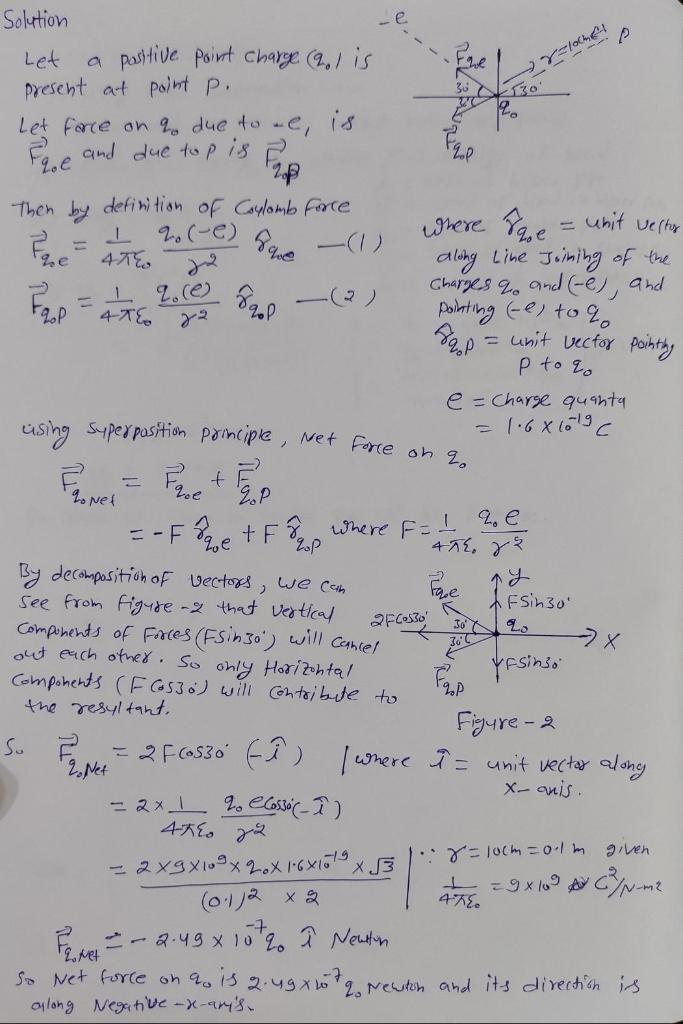 Solution
Let a positive point charge (q₀) is
present at point P.
Let Force on q₀ due to -e, is
F⃗q₀e and due to p is F⃗q₀p
-e
F⃗q₀e
r=10cm
P
30°
30°
30°
q₀
F⃗q₀p
Then by definition of Coulomb Force
F⃗q₀e = 1/4πε₀ q₀(-e)/r² r̂q₀e —(1)
F⃗q₀p = 1/4πε₀ q₀(e)/r² r̂q₀p —(2)
where r̂q₀e = unit vector
along Line Joining of the
charges q₀ and (-e), and
pointing (-e) to q₀
r̂q₀p = unit vector pointing
P to q₀
e = charge quanta
= 1.6 X 10⁻¹⁹ C
using superposition principle, Net Force on q₀
F⃗q₀Net = F⃗q₀e + F⃗q₀p
= -F r̂q₀e + F r̂q₀p where F = 1/4πε₀ q₀e/r²
By decomposition of vectors, we can
see from figure-2 that vertical
components of Forces (FSin30°) will cancel
out each other. So only Horizontal
Components (FCos30°) will contribute to
the resultant.
F⃗q₀e
y
FSin30°
2FCos30°
30°
30°
q₀
X
F⃗q₀p
FSin30°
Figure-2
So F⃗q₀Net = 2FCos30° (-î) | where î = unit vector along
x-axis.
= 2 x 1/4πε₀ q₀eCos30°/r² (-î)
= 2X9X10⁹X q₀ X1.6X10⁻¹⁹X√3 / (0.1)² x 2
∵ r=10cm=0.1m given
1/4πε₀ = 9x10⁹ C²/N-m²
F⃗q₀Net = - 2.49 x 10⁻⁷ q₀ î Newton
So Net force on q₀ is 2.49x10⁻⁷ q₀ Newton and its direction is
along Negative-x-axis.